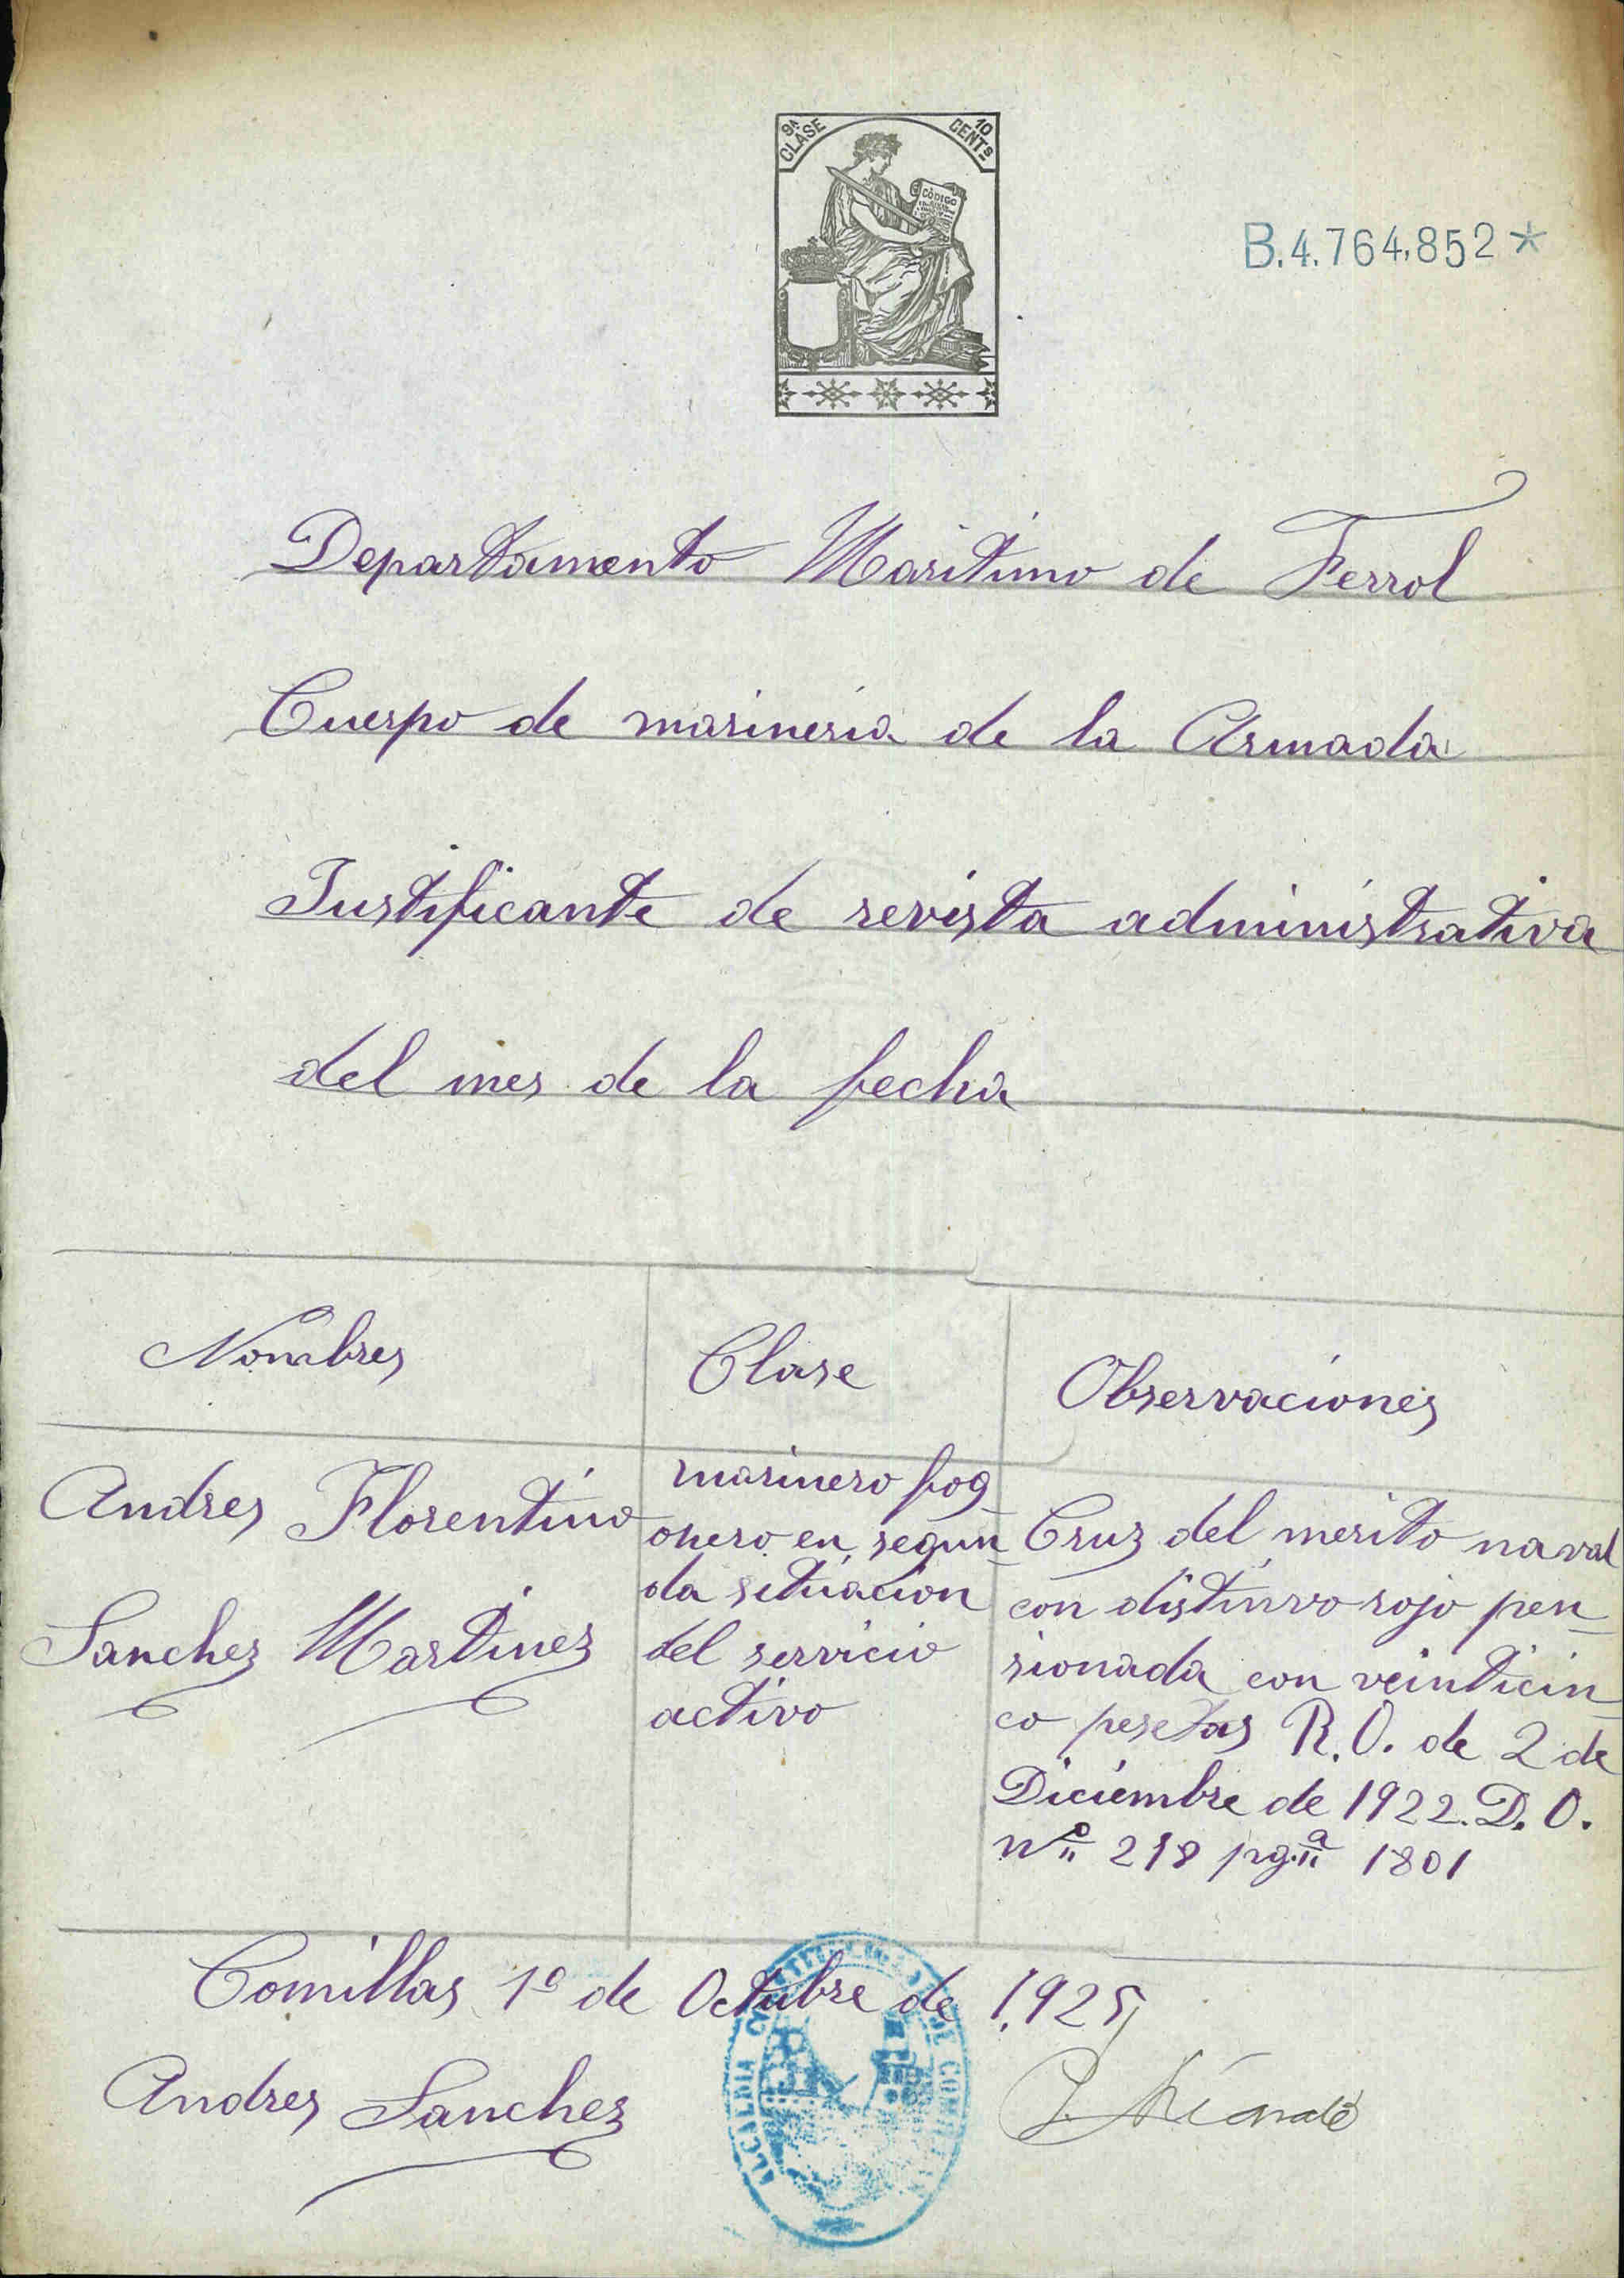 9ª CLASE
10 CENTS
CÓDIGO
B.4.764.852*
Departamento Maritimo de Ferrol
Cuerpo de marineria de la Armada
Justificante de revista administrativa
del mes de la fecha
Nombres
Clase
Observaciones
Andres Florentino
Sanchez Martinez
marinero fog
onero en segun
da situacion
del servicio
activo
Cruz del merito naval
con distinvo rojo pen
sionada con veinticin
co pesetas R.O. de 2 de
Diciembre de 1922. D.O.
nº 218 pg.ª 1801
Comillas 1º de Octubre de 1.925
Andres Sanchez
ALCALDIA
DE COMILLAS